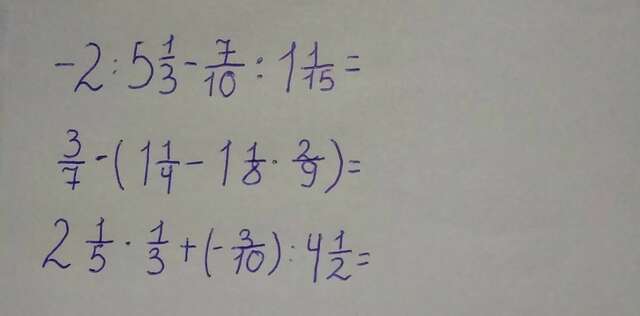 -2 : 5 1/3 - 7/10 : 1 1/15 =
3/7 - (1 1/4 - 1 1/8 · 2/9) =
2 1/5 · 1/3 + (- 3/10) : 4 1/2 =